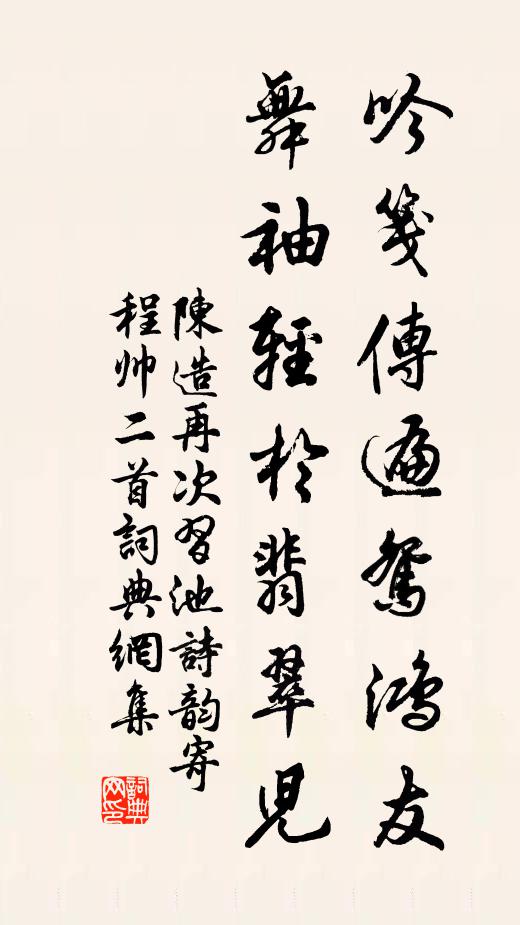 吟箋傳遍鴛鴻友
舞袖輕於翡翠兒
陳造再次習池詩韵寄
程帅二首詞典網集
詞典
网印